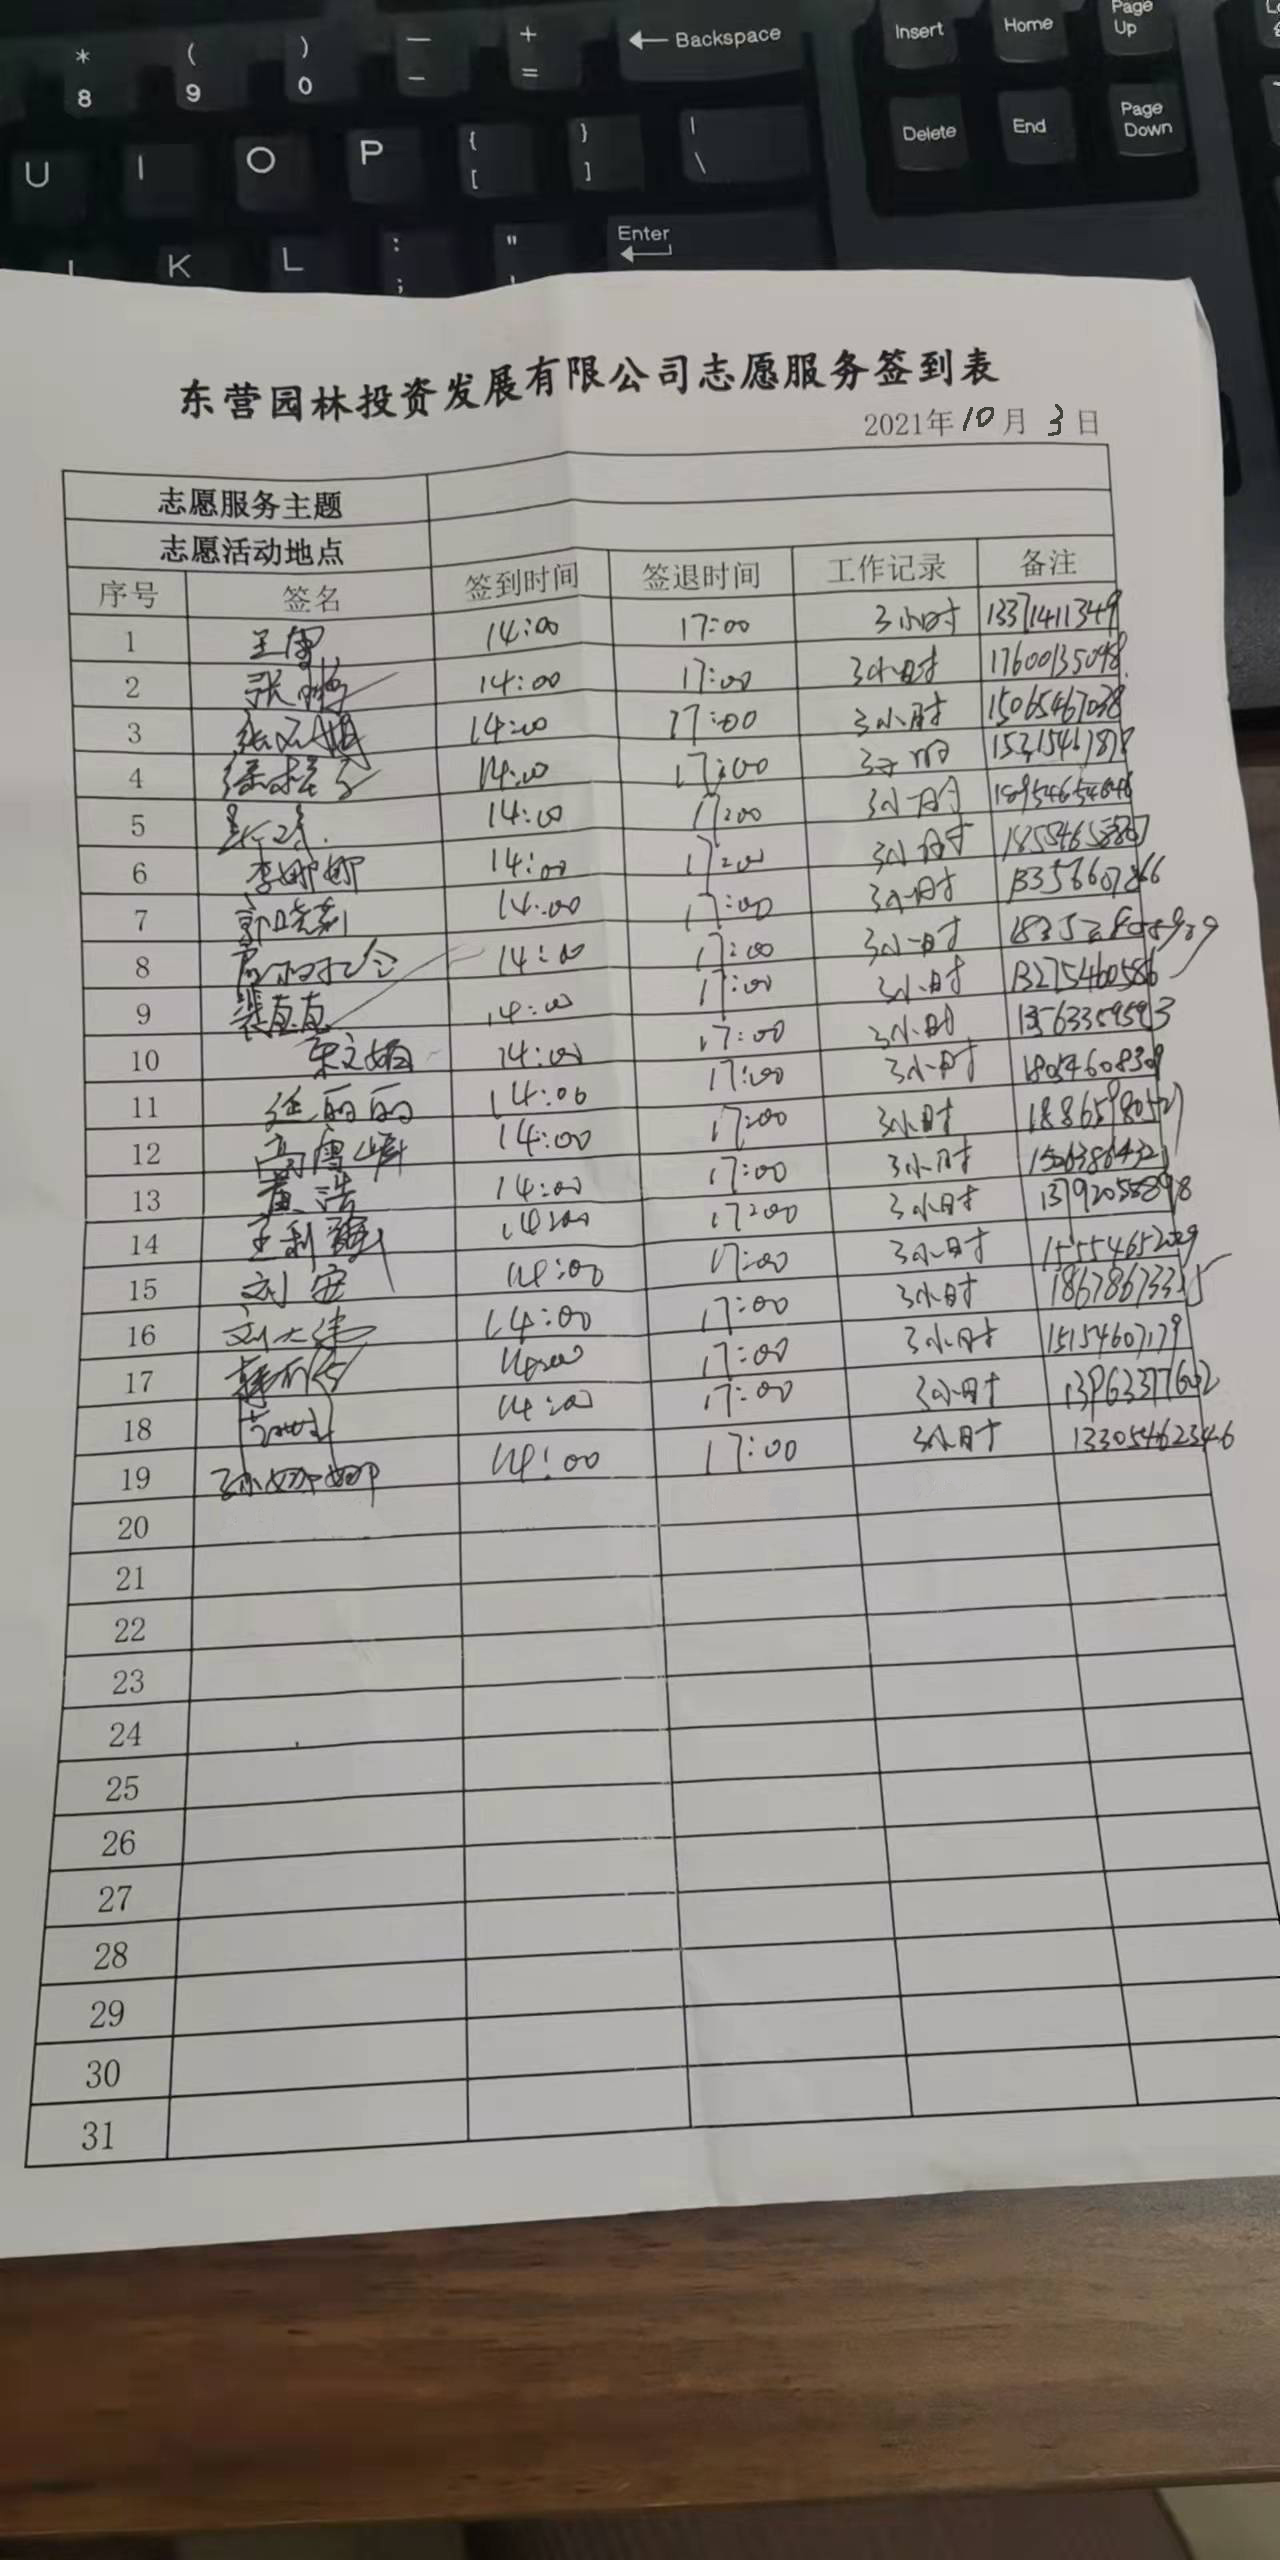 * ( ) — + ← Backspace Insert Home Page Up
8 9 0 - =
U I O P { } | Delete End Page Down
[ ] \
K L : " Enter
;
东营园林投资发展有限公司志愿服务签到表
2021年10月3日
志愿服务主题
志愿活动地点
序号 签名 签到时间 签退时间 工作记录 备注
1 14:00 17:00 3小时 13371411349
2 14:00 17:00 3小时 17600135098
3 14:00 17:00 3小时 15065467038
4 14:00 17:00
5 14:00 17:00 3小时
6 李娜娜 14:00 17:00 3小时
7 郭晓莉 14:00 17:00 3小时
8 14:00 17:00 3小时
9 裴真真 14:00 17:00 3小时 13275460586
10 宋文娟 14:00 17:00 3小时 13563359593
11 任丽丽 14:00 17:00 3小时 18054608309
12 14:00 17:00 3小时
13 黄浩 14:00 17:00 3小时
14 14:00 17:00 3小时 13792055898
15 刘安 14:00 17:00 3小时 15554652029
16 刘大伟 14:00 17:00 3小时
17 14:00 17:00 3小时 15154607179
18 14:00 17:00 3小时 13963377602
19 孙娜娜 14:00 17:00 3小时 13305462346
20
21
22
23
24
25
26
27
28
29
30
31